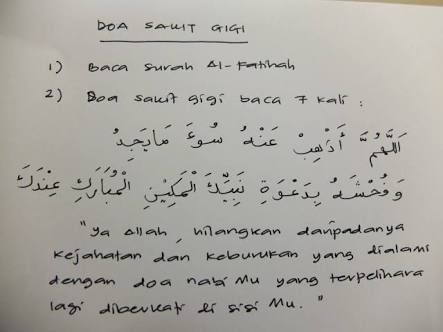 DOA SAKIT GIGI
1) Baca surah Al-Fatihah
2) Doa sakit gigi baca 7 kali :
اَللّٰهُمَّ أَذْهِبْ عَنْهُ سُوءَ مَا يَجِدُ
وَفُحْشَهُ بِدَعْوَةِ نَبِيِّكَ الْمَكِيْنِ الْمُبَارَكِ عِنْدَكَ
"Ya Allah, hilangkan daripadanya
kejahatan dan keburukan yang dialami
dengan doa nabi Mu yang terpelihara
lagi diberkati di sisi Mu."